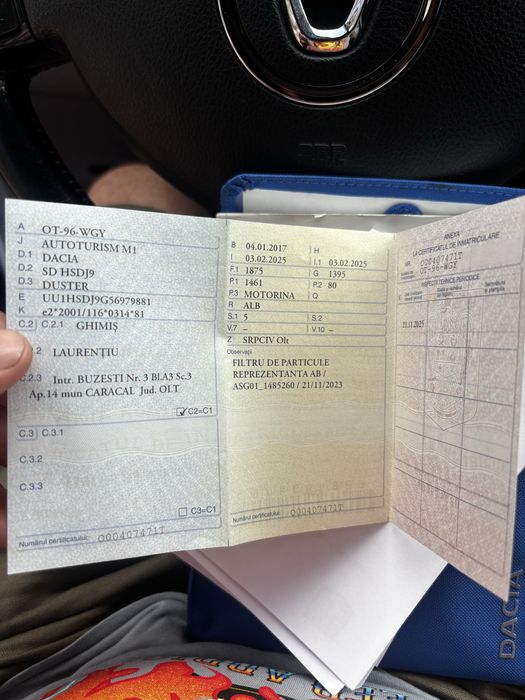 A OT-96-WGY
J AUTOTURISM M1
D.1 DACIA
D.2 SD HSDJ9
D.3 DUSTER
E UU1HSDJ9G56979881
K e2*2001/116*0314*81
C.2 C.2.1 GHIMIȘ
.2 LAURENȚIU
.2.3 Intr. BUZESTI Nr. 3 Bl.A3 Sc.3
Ap.14 mun CARACAL Jud. OLT
C2=C1
C.3 C.3.1
C.3.2
C.3.3
C3=C1
Numărul certificatului: O00407471T
B 04.01.2017 H
I 03.02.2025 I.1 03.02.2025
F.1 1875 G 1395
P.1 1461 P.2 80
P.3 MOTORINA Q
R ALB
S.1 5 S.2
V.7 – V.10 –
Z SRPCIV Olt
Observații
FILTRU DE PARTICULE
REPREZENTANTA AB /
ASG01_1485260 / 21/11/2023
Numărul certificatului: O00407471T
ANEXA
LA CERTIFICATUL DE ÎNMATRICULARE
O00407471T
OT-96-WGY
INSPECȚII TEHNICE PERIODICE
21.11.2025
DACIA